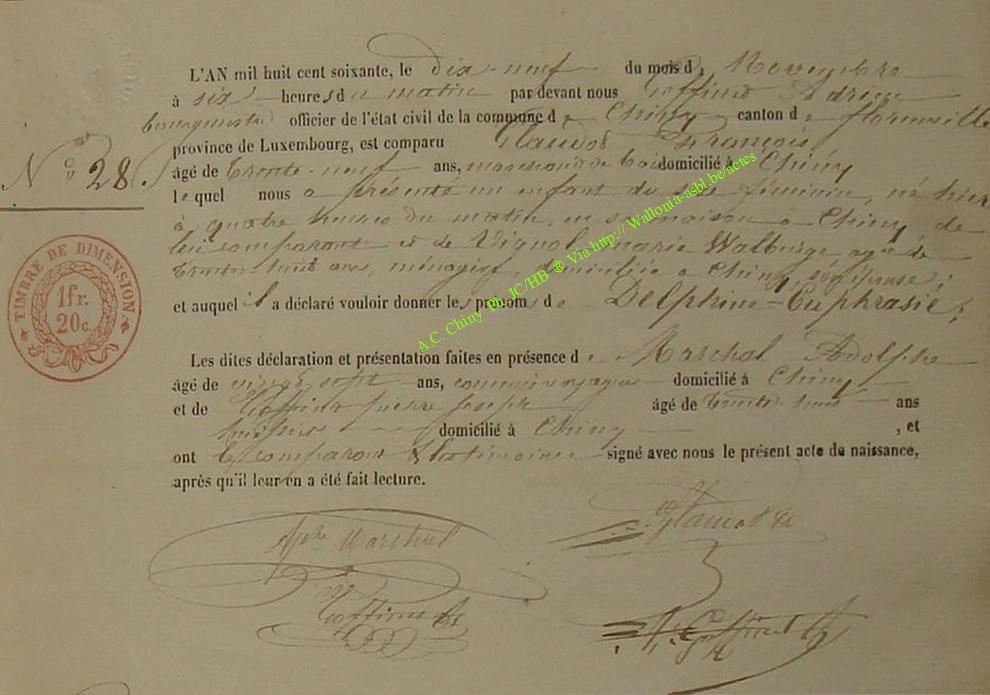 L'AN mil huit cent soixante, le dix-neuf du mois de Novembre
à six heures du matin par devant nous Goffinet Adrien
bourgmestre officier de l'état civil de la commune de Chiny canton de florenville
province de Luxembourg, est comparu François
No 28. âgé de trente-neuf ans, marchand de bois domicilié à Chiny
lequel nous a présenté un enfant du sexe féminin, né hier
à quatre heures du matin, en sa maison à Chiny de
lui comparant et de Vignol marie Walburge agée de
trente huit ans, ménagère, domiciliée à Chiny son épouse;
et auquel il a déclaré vouloir donner les prénom de Delphine-Euphrasie;
TIMBRE DE DIMENSION.
1 fr.
20 c.
Les dites déclaration et présentation faites en présence de Marchal Adolphe
âgé de vingt-sept ans, commis voyageur domicilié à Chiny
et de Goffinet pierre joseph âgé de trente-huit ans
huissier domicilié à Chiny , et
ont le comparant & les témoins signé avec nous le présent acte de naissance,
après qu'il leur en a été fait lecture.
Aphe Marchal
Goffinet
A. Goffinet
A.C. Chiny Ph. JC/HB @ Via http:// Wallonia-asbl.be/actes